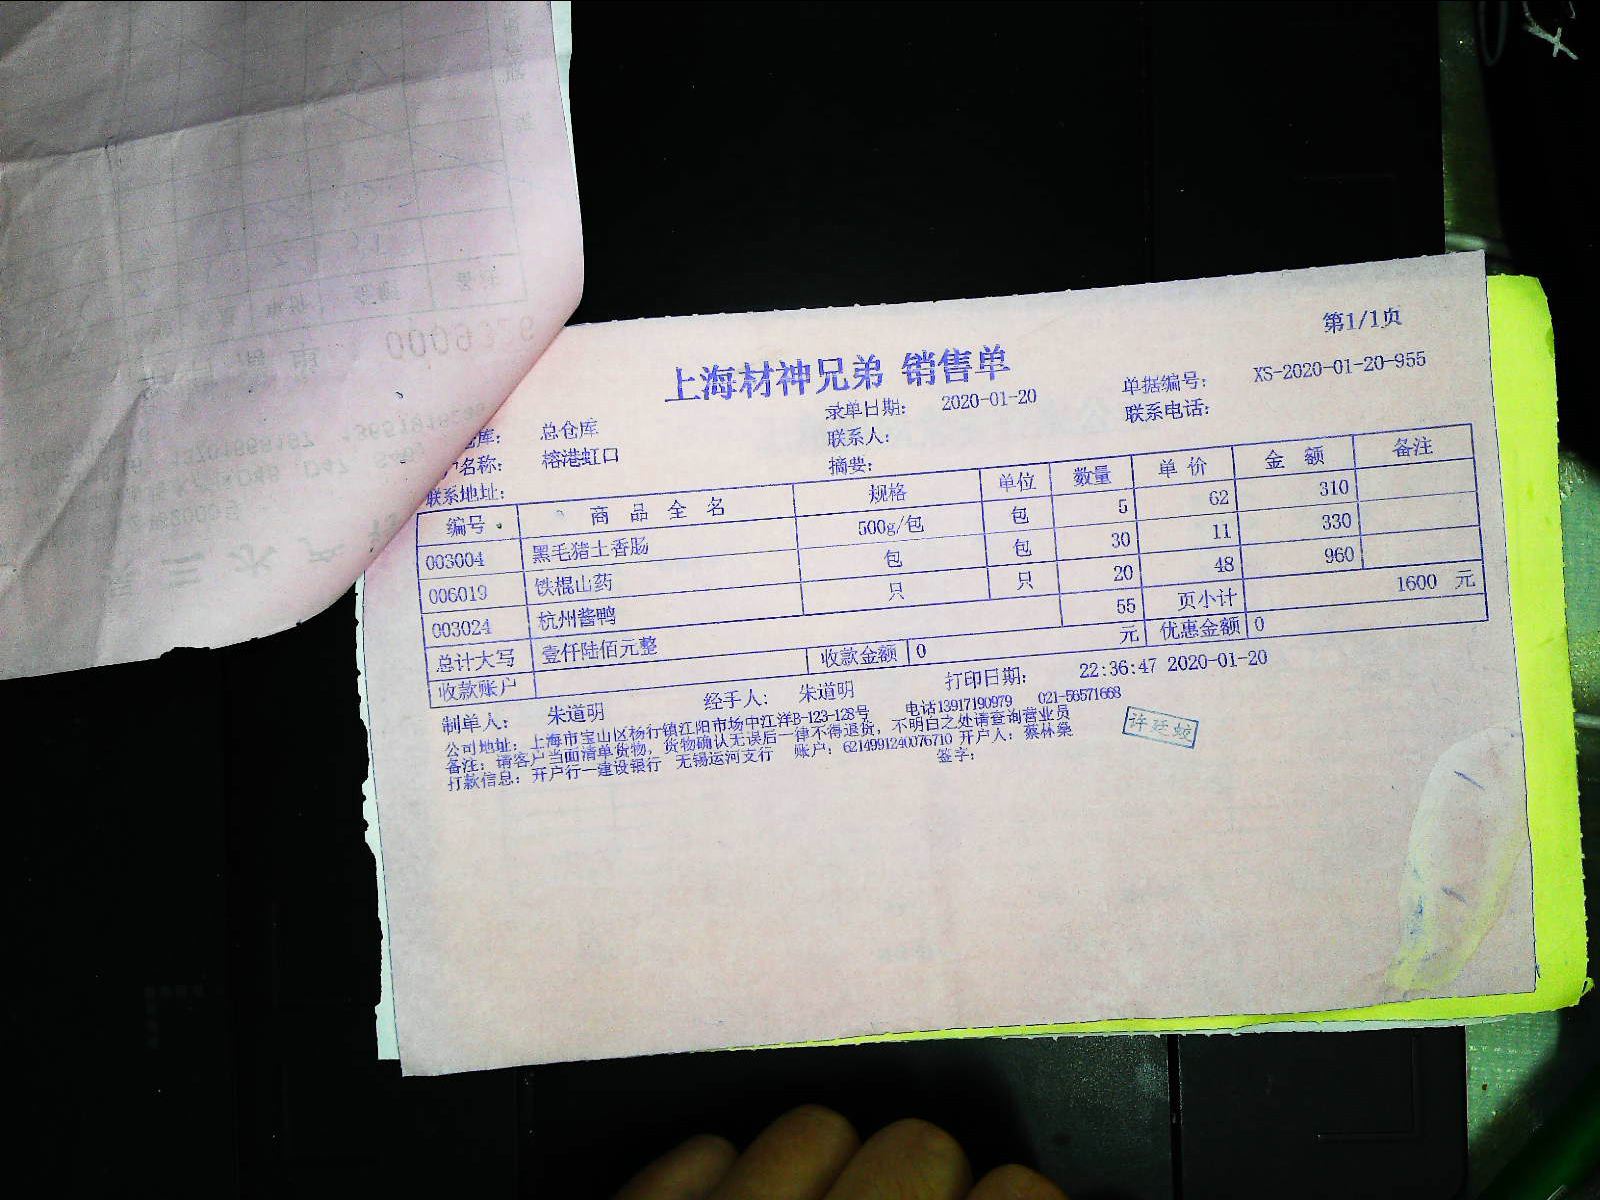 第1/1页
上海材神兄弟 销售单
仓库： 总仓库 录单日期： 2020-01-20 单据编号： XS-2020-01-20-955
户名称： 榕港虹口 联系人： 联系电话：
联系地址： 摘要：
编号 商品全名 规格 单位 数量 单价 金额 备注
003004 黑毛猪土香肠 500g/包 包 5 62 310
006019 铁棍山药 包 包 30 11 330
003024 杭州酱鸭 只 只 20 48 960
总计大写 壹仟陆佰元整 55 页小计 1600 元
收款账户 收款金额 0 元 优惠金额 0
制单人： 朱道明 经手人： 朱道明 打印日期： 22:36:47 2020-01-20
公司地址：上海市宝山区杨行镇江阳市场中江洋B-123-128号 电话13917190979 021-56571668
备注：请客户当面清单货物，货物确认无误后一律不得退货，不明白之处请查询营业员
打款信息：开户行—建设银行 无锡运河支行 账户：6214991240076710 开户人：蔡林燊
签字：
许廷蛟